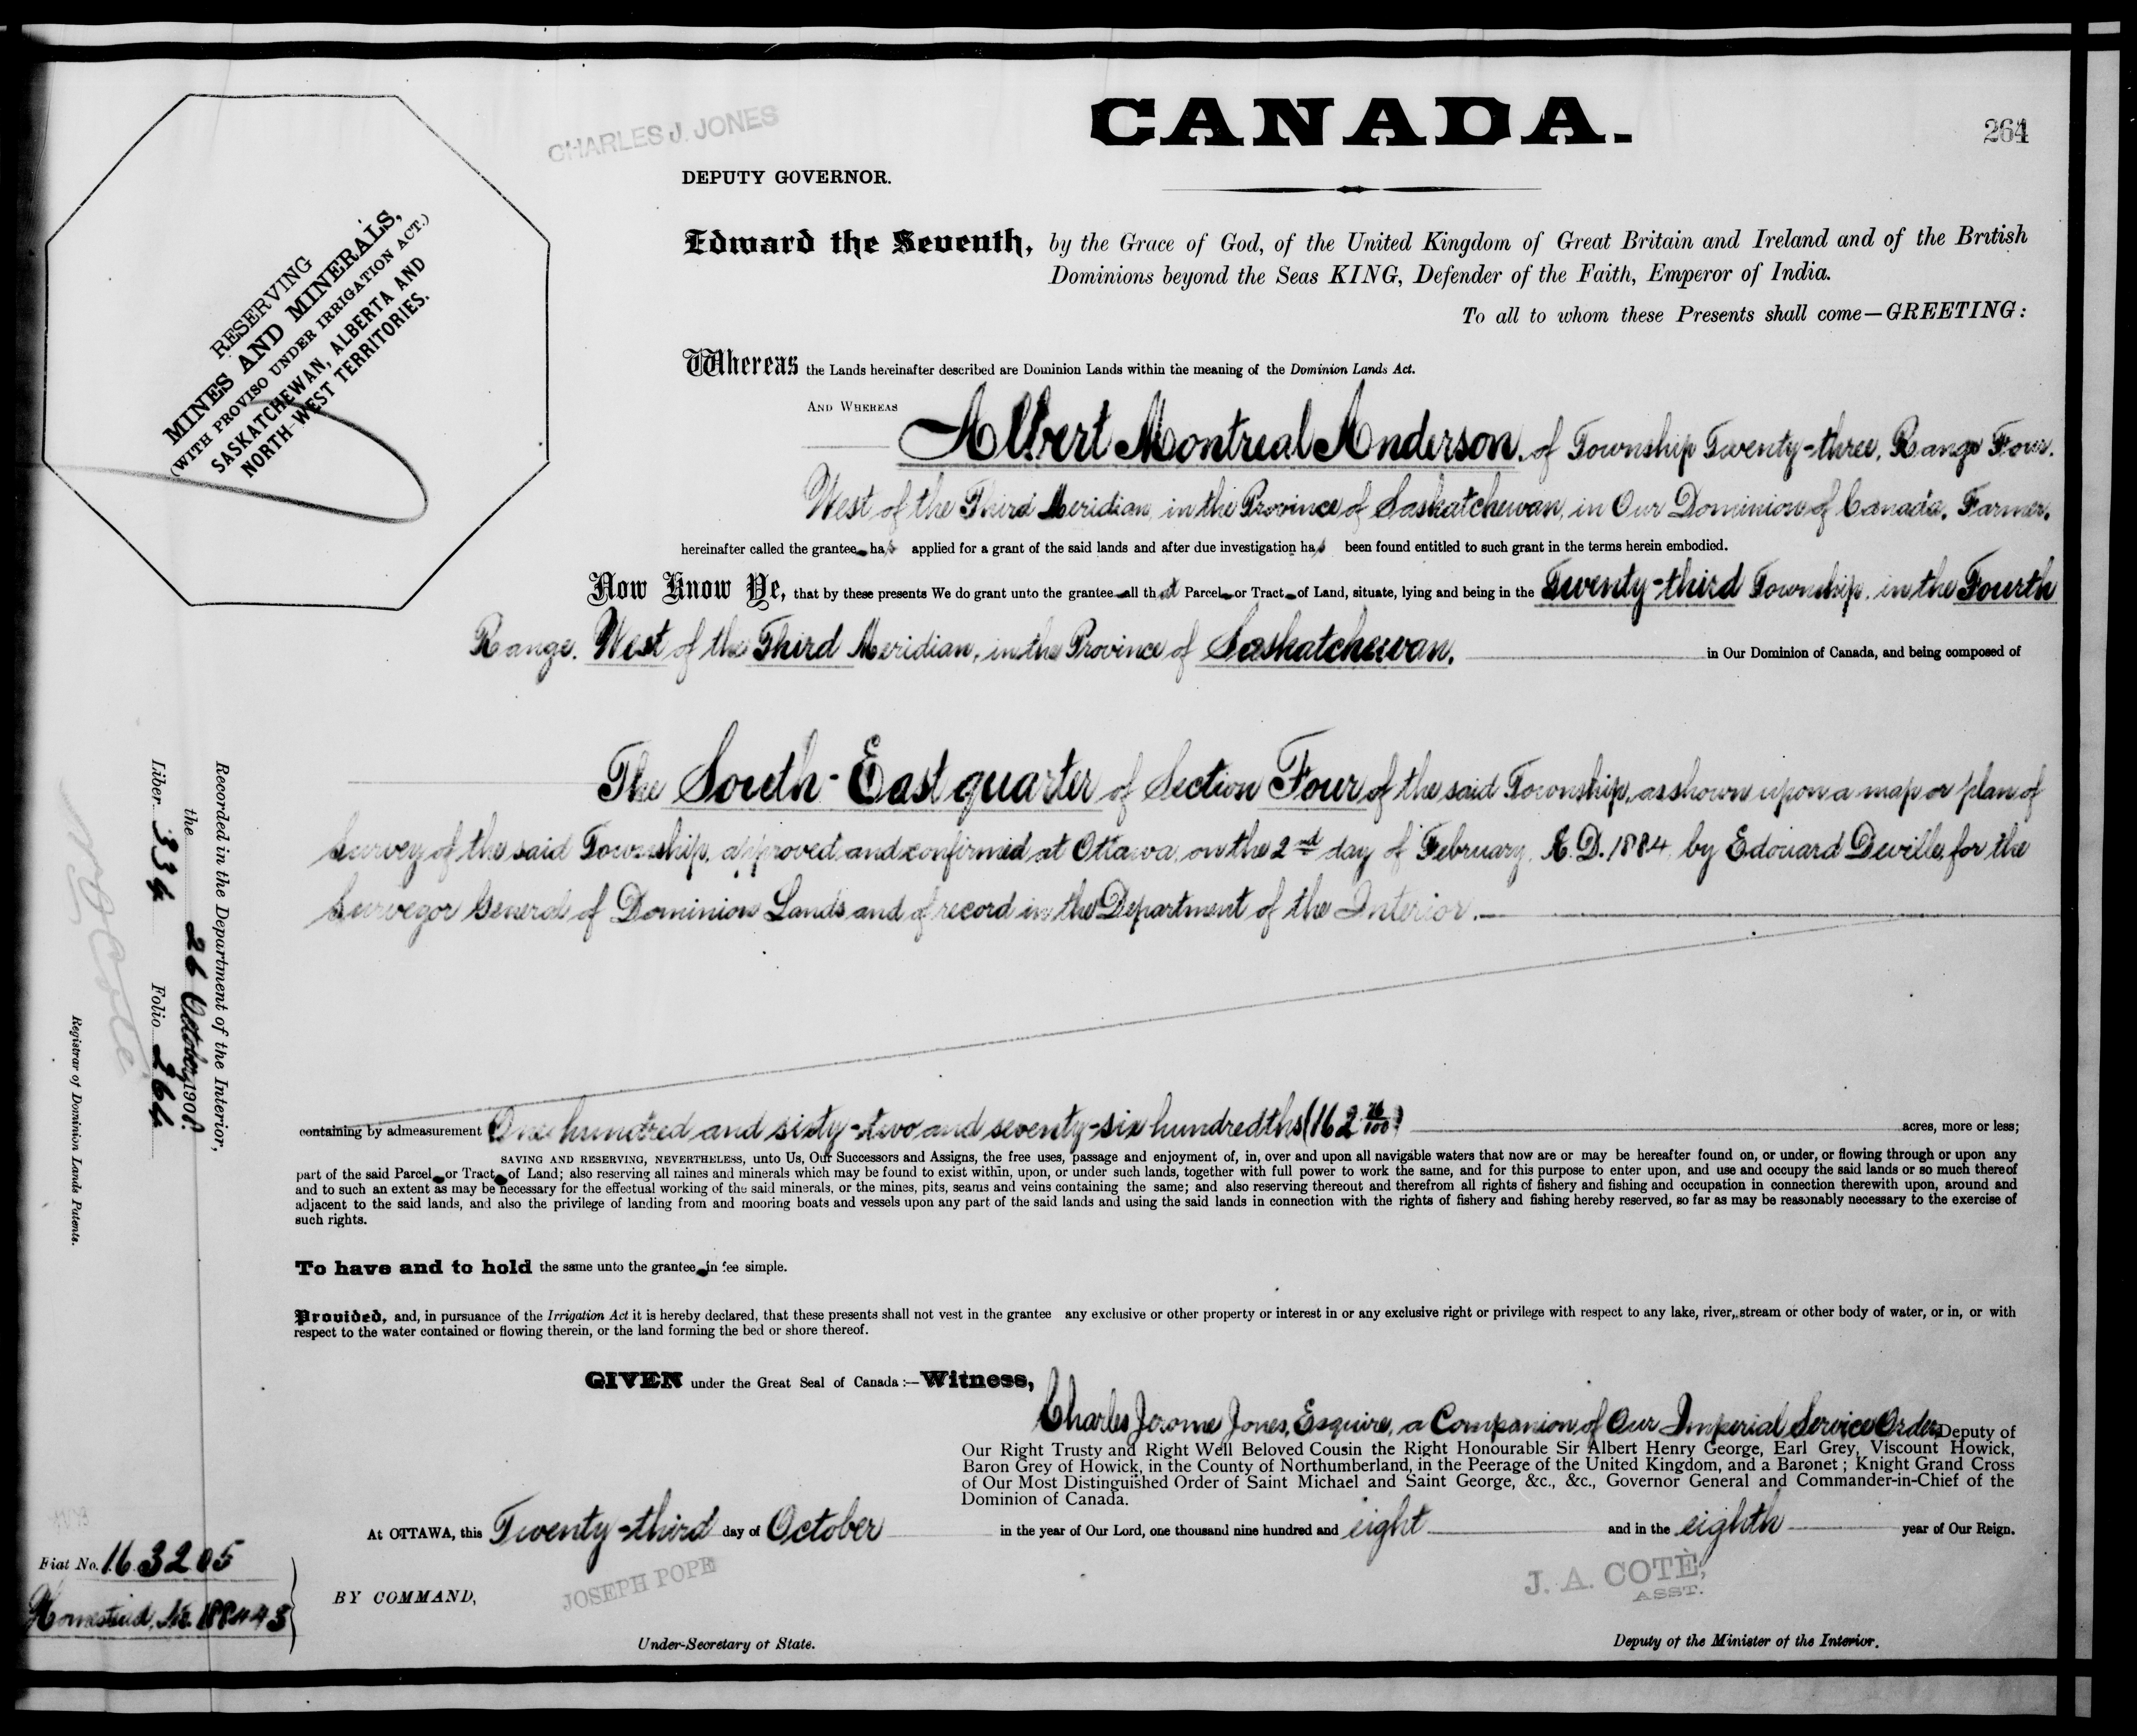 CANADA.
264
CHARLES J. JONES
DEPUTY GOVERNOR.
RESERVING
MINES AND MINERALS,
(WITH PROVISO UNDER IRRIGATION ACT.)
SASKATCHEWAN, ALBERTA AND
NORTH-WEST TERRITORIES.
Edward the Seventh, by the Grace of God, of the United Kingdom of Great Britain and Ireland and of the British
Dominions beyond the Seas KING, Defender of the Faith, Emperor of India.
To all to whom these Presents shall come—GREETING:
Whereas the Lands hereinafter described are Dominion Lands within the meaning of the Dominion Lands Act.
AND WHEREAS Albert Montreal Anderson, of Township Twenty-three, Range Four,
West of the Third Meridian, in the Province of Saskatchewan, in Our Dominion of Canada, Farmer,
hereinafter called the grantee has applied for a grant of the said lands and after due investigation has been found entitled to such grant in the terms herein embodied.
Now Know Ye, that by these presents We do grant unto the grantee all that Parcel or Tract of Land, situate, lying and being in the Twenty-third Township, in the Fourth
Range, West of the Third Meridian, in the Province of Saskatchewan, in Our Dominion of Canada, and being composed of
The South-East quarter of Section Four of the said Township, as shown upon a map or plan of
Survey of the said Township, approved and confirmed at Ottawa, on the 2nd day of February, A.D. 1884, by Edouard Deville, for the
Surveyor General of Dominion Lands and of record in the Department of the Interior.
containing by admeasurement One hundred and sixty-two and seventy-six hundredths (162 76/100) acres, more or less;
SAVING AND RESERVING, NEVERTHELESS, unto Us, Our Successors and Assigns, the free uses, passage and enjoyment of, in, over and upon all navigable waters that now are or may be hereafter found on, or under, or flowing through or upon any
part of the said Parcel or Tract of Land; also reserving all mines and minerals which may be found to exist within, upon, or under such lands, together with full power to work the same, and for this purpose to enter upon, and use and occupy the said lands or so much thereof
and to such an extent as may be necessary for the effectual working of the said minerals, or the mines, pits, seams and veins containing the same; and also reserving thereout and therefrom all rights of fishery and fishing and occupation in connection therewith upon, around and
adjacent to the said lands, and also the privilege of landing from and mooring boats and vessels upon any part of the said lands and using the said lands in connection with the rights of fishery and fishing hereby reserved, so far as may be reasonably necessary to the exercise of
such rights.
To have and to hold the same unto the grantee in fee simple.
Provided, and, in pursuance of the Irrigation Act it is hereby declared, that these presents shall not vest in the grantee any exclusive or other property or interest in or any exclusive right or privilege with respect to any lake, river, stream or other body of water, or in, or with
respect to the water contained or flowing therein, or the land forming the bed or shore thereof.
GIVEN under the Great Seal of Canada:—Witness,
Charles Jerome Jones, Esquire, a Companion of Our Imperial Service Order, Deputy of
Our Right Trusty and Right Well Beloved Cousin the Right Honourable Sir Albert Henry George, Earl Grey, Viscount Howick,
Baron Grey of Howick, in the County of Northumberland, in the Peerage of the United Kingdom, and a Baronet; Knight Grand Cross
of Our Most Distinguished Order of Saint Michael and Saint George, &c., &c., Governor General and Commander-in-Chief of the
Dominion of Canada.
At OTTAWA, this Twenty-third day of October in the year of Our Lord, one thousand nine hundred and eight and in the eighth year of Our Reign.
BY COMMAND,
JOSEPH POPE
Under-Secretary of State.
J. A. COTÈ,
ASST.
Deputy of the Minister of the Interior.
Recorded in the Department of the Interior,
the 26 October 1908.
Liber 334 Folio 264
Registrar of Dominion Lands Patents.
Fiat No. 163205
Homestead, No. 188443